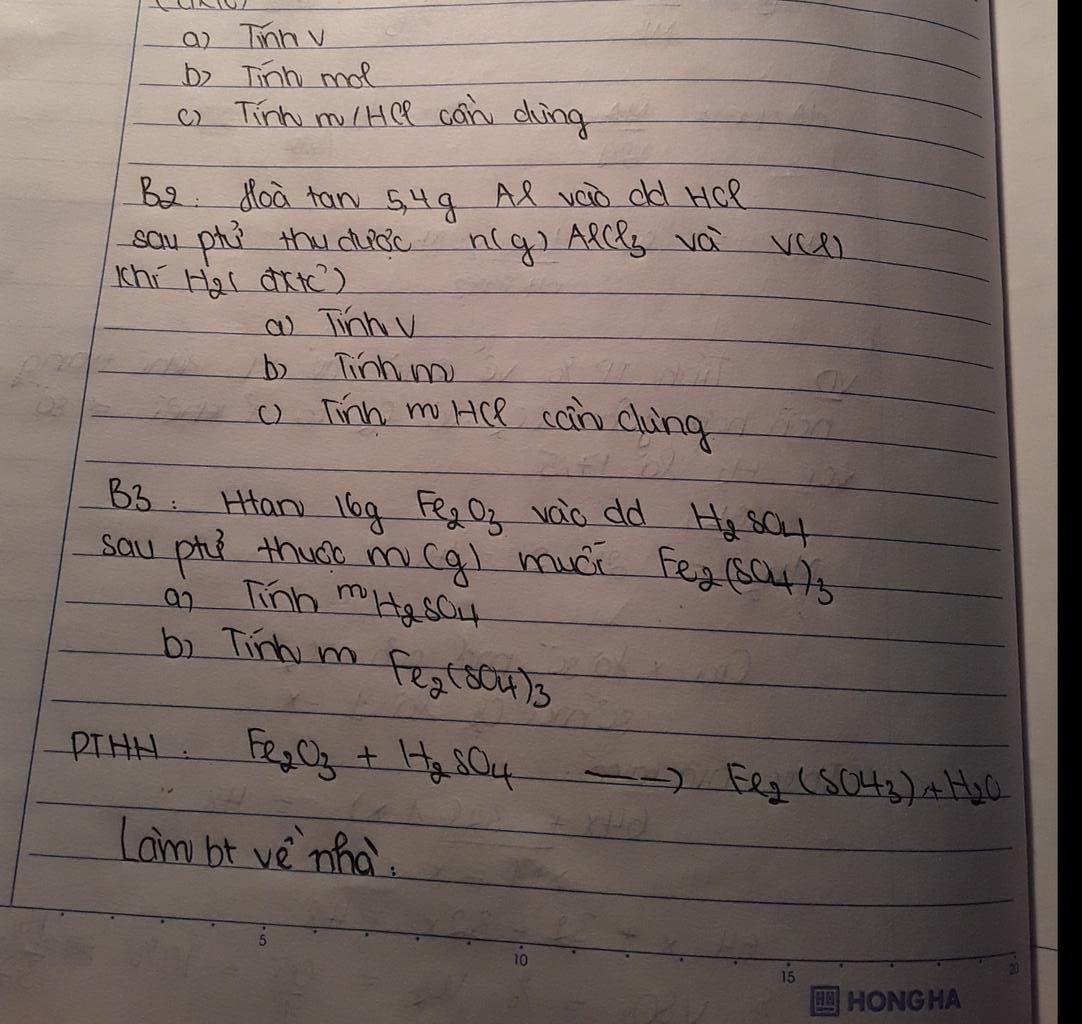 a) Tính V
b) Tính mol
c) Tính m/HCl cần dùng
B2: Hoà tan 5,4g Al vào dd HCl
sau phử thu được n(g) AlCl3 và V(l)
khí H2( đktc)
a) Tính V
b) Tính m
c) Tính m HCl cần dùng
B3: Htan 16g Fe2O3 vào dd H2SO4
sau phử thuợc m(g) muối Fe2(SO4)3
a) Tính mH2SO4
b) Tính m Fe2(SO4)3
PTHH: Fe2O3 + H2SO4 ---> Fe2(SO43)+H2O
Làm bt về nhà.
5 10 15 20
HH HONG HA